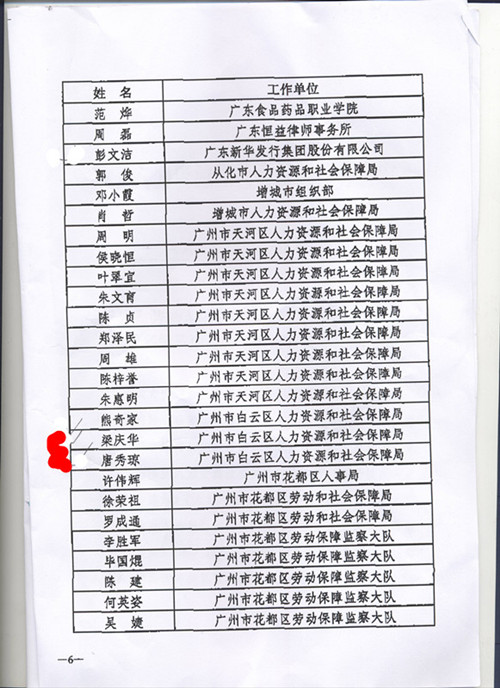 姓 名 工作单位
范 烨 广东食品药品职业学院
周 磊 广东恒益律师事务所
彭文洁 广东新华发行集团股份有限公司
郭 俊 从化市人力资源和社会保障局
邓小霞 增城市组织部
肖 哲 增城市人力资源和社会保障局
周 明 广州市天河区人力资源和社会保障局
侯晓恒 广州市天河区人力资源和社会保障局
叶翠宜 广州市天河区人力资源和社会保障局
朱文育 广州市天河区人力资源和社会保障局
陈 贞 广州市天河区人力资源和社会保障局
郑泽民 广州市天河区人力资源和社会保障局
周 雄 广州市天河区人力资源和社会保障局
陈梓誉 广州市天河区人力资源和社会保障局
朱惠明 广州市天河区人力资源和社会保障局
熊奇家 广州市白云区人力资源和社会保障局
梁庆华 广州市白云区人力资源和社会保障局
唐秀琼 广州市白云区人力资源和社会保障局
许伟辉 广州市花都区人事局
徐荣祖 广州市花都区劳动和社会保障局
罗成通 广州市花都区劳动和社会保障局
李胜军 广州市花都区劳动保障监察大队
毕国焜 广州市花都区劳动保障监察大队
陈 建 广州市花都区劳动保障监察大队
何英姿 广州市花都区劳动保障监察大队
吴 婕 广州市花都区劳动保障监察大队
—6—